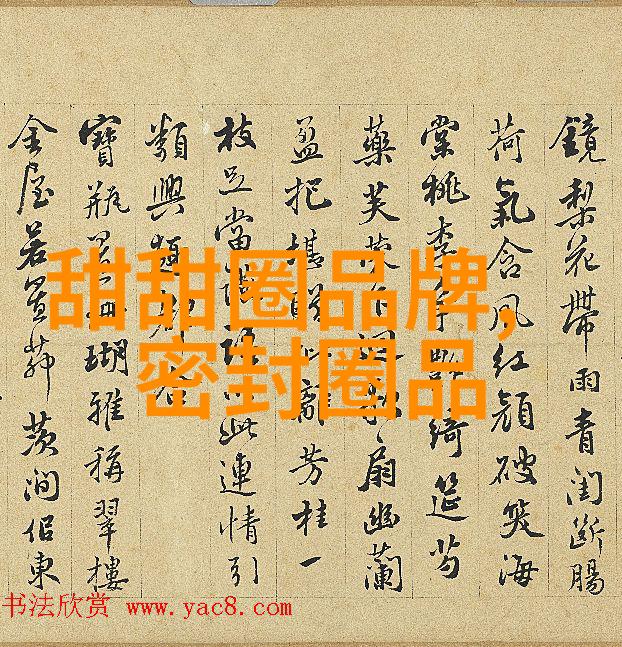 鏡梨花帶雨青閨斷腸
荷氣含風紅顔破笑海
棠桃李爭
綺筵芍
藥芙
扇幽蘭
盈把堪
辭芳桂一
枝足當
此連情引
類興
寶瓶
珊瑚雅稱翠樓
金屋若
茨澗侶東
甜甜圈品牌,
密封圈品
书法欣赏 www.yac8.com